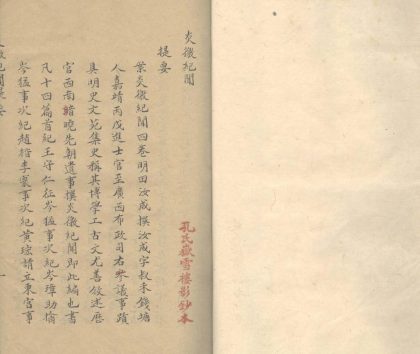 炎徼紀聞
提要
案炎徼紀聞四卷明田汝成撰汝成字叔禾錢塘
人嘉靖丙戌進士官至廣西布政司右參議事蹟
具明史文苑集史稱其博學工古文尤善敘述歷
官西南諳曉先朝遺事撰炎徼紀聞即此編也書
凡十四篇首紀王守仁征岑猛事次紀岑璋助擒
岑猛事次紀趙楷李寰事次紀黃竑請立東宮事
孔氏嶽雪樓影鈔本